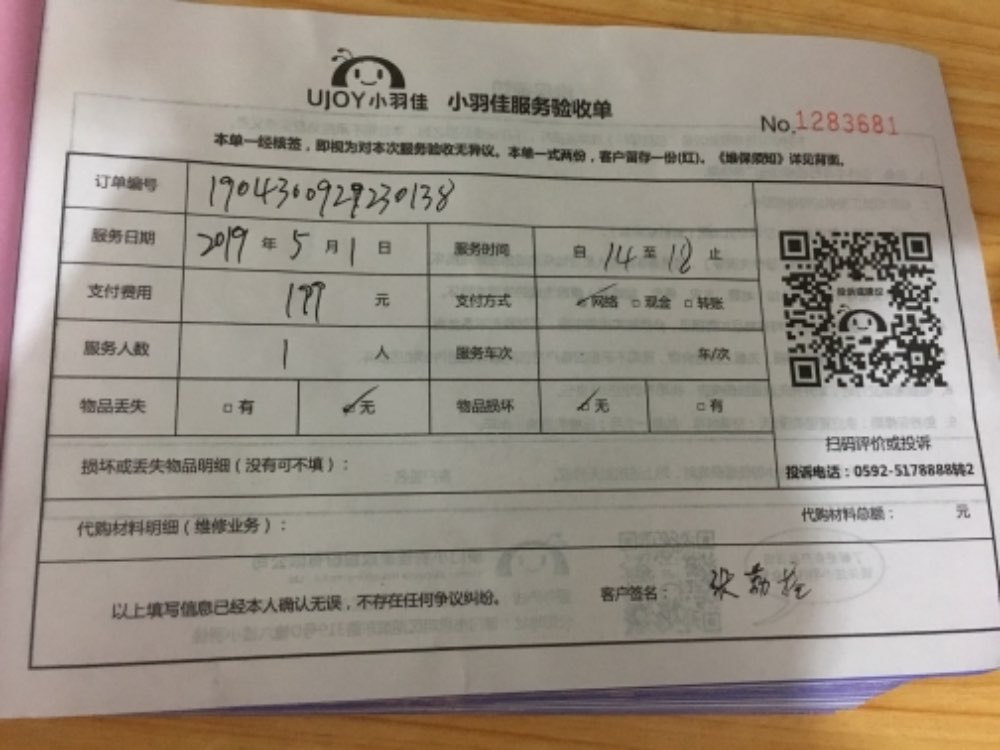 UJOY小羽佳 小羽佳服务验收单
No.1283681
本单一经核签，即视为对本次服务验收无异议。本单一式两份，客户留存一份(红)。《维保须知》详见背面。
订单编号
服务日期 2019 年 5 月 1 日 服务时间 自 14 至 18 止
支付费用 199 元 支付方式 ☑网络 □现金 □转账
服务人数 1 人 服务车次 车/次
物品丢失 □有 ☑无 物品损坏 ☑无 □有
投诉或建议
扫码评价或投诉
投诉电话：0592-5178888转2
损坏或丢失物品明细（没有可不填）：
代购材料明细（维修业务）： 代购材料总额： 元
以上填写信息已经本人确认无误，不存在任何争议纠纷。 客户签名：